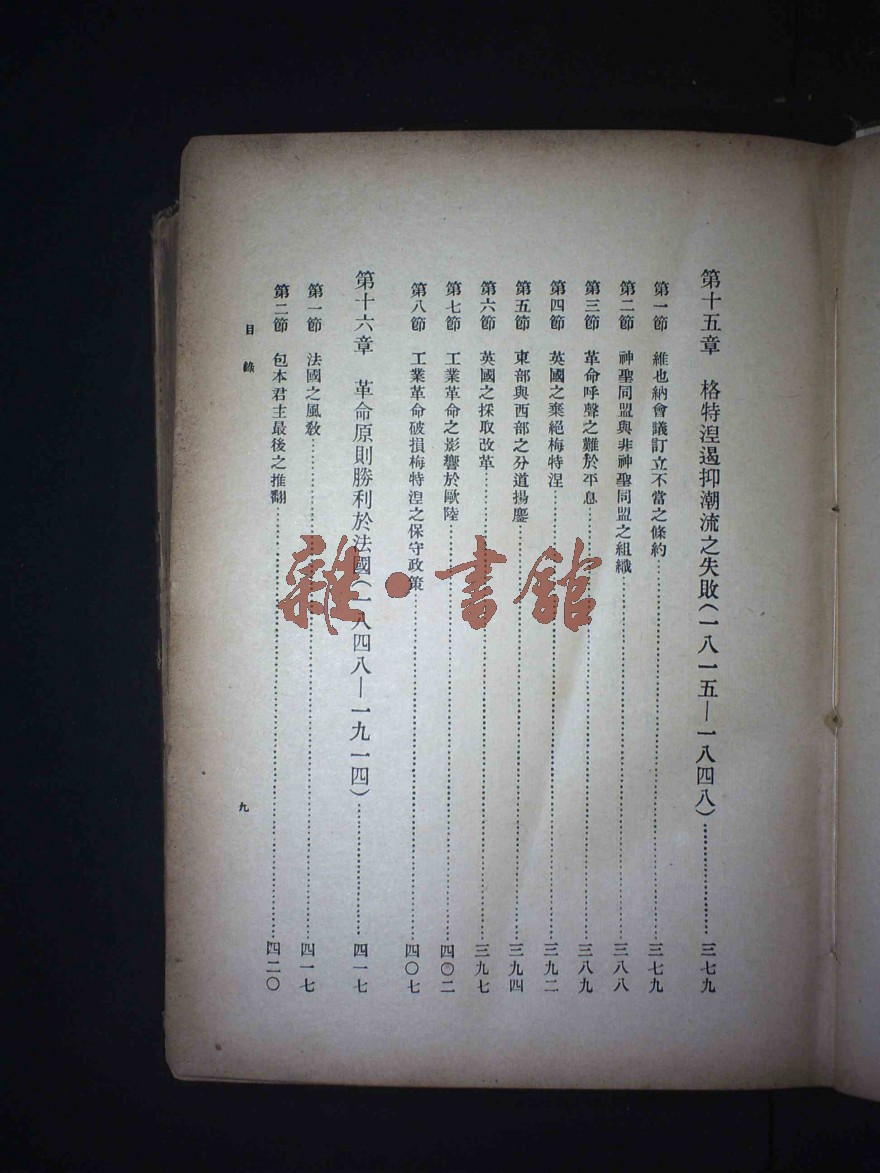 第十五章　格特涅遏抑潮流之失敗(一八一五—一八四八)……三七九
第一節　維也納會議訂立不當之條約……三七九
第二節　神聖同盟與非神聖同盟之組織……三八八
第三節　革命呼聲之難於平息……三八九
第四節　英國之棄絕梅特涅……三九二
第五節　東部與西部之分道揚鏕……三九四
第六節　英國之採取改革……三九七
第七節　工業革命之影響於歐陸……四〇二
第八節　工業革命破損梅特涅之保守政策……四〇七
第十六章　革命原則勝利於法國(一八四八—一九一四)……四一七
第一節　法國之風教……四一七
第二節　包本君主最後之推翻……四二〇
目錄
九
雜·書館